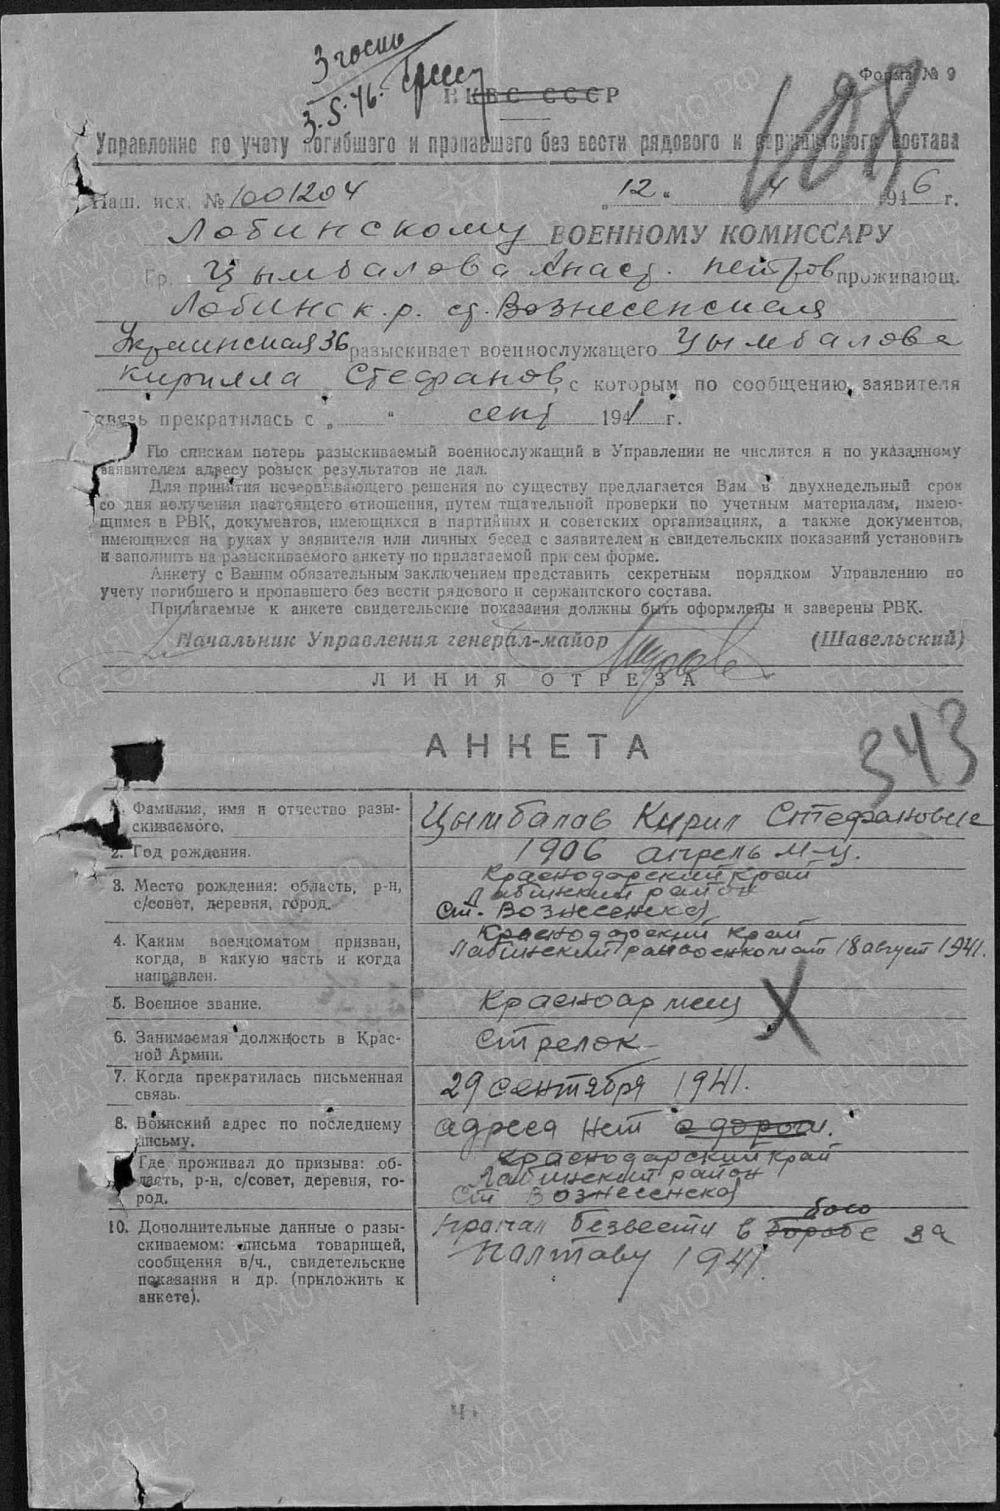 3.5.46.
Форма № 9
НКВС СССР
108
Управление по учету погибшего и пропавшего без вести рядового и сержантского состава
Наш. исх. № 1001204 „12“ 4 1946 г.
Лобинскому ВОЕННОМУ КОМИССАРУ
Гр. Цымбалова Анаст. петров проживающ.
Лобинск. р. ст. Вознесенская
Украинская 36 разыскивает военнослужащего Цымбалова
Кирилла Стефанов, с которым по сообщению заявителя
связь прекратилась с „ “ сент 1941 г.
По спискам потерь разыскиваемый военнослужащий в Управлении не числится и по указанному
заявителем адресу розыск результатов не дал.
Для принятия исчерпывающего решения по существу предлагается Вам в двухнедельный срок
со дня получения настоящего отношения, путем тщательной проверки по учетным материалам, имею-
щимся в РВК, документов, имеющихся в партийных и советских организациях, а также документов,
имеющихся на руках у заявителя или личных бесед с заявителем и свидетельских показаний установить
и заполнить на разыскиваемого анкету по прилагаемой при сем форме.
Анкету с Вашим обязательным заключением представить секретным порядком Управлению по
учету погибшего и пропавшего без вести рядового и сержантского состава.
Прилагаемые к анкете свидетельские показания должны быть оформлены и заверены РВК.
Начальник Управления генерал-майор (Шавельский)
ЛИНИЯ ОТРЕЗА
АНКЕТА
343
1. Фамилия, имя и отчество разы-
скиваемого.
Цымбалав Кирил Стефановис
2. Год рождения.
1906 апрель м-ц.
3. Место рождения: область, р-н,
с/совет, деревня, город.
Краснодарский край
Лабинский район
ст. Вознесенской
4. Каким военкоматом призван,
когда, в какую часть и когда
направлен.
Краснодарский край
Лабинский райвоенкомат 18 август 1941.
5. Военное звание.
Красноармеец
6. Занимаемая должность в Крас-
ной Армии.
стрелок
7. Когда прекратилась письменная
связь.
29 сентября 1941.
8. Воинский адрес по последнему
письму.
адреса нет с дороги.
9. Где проживал до призыва: об-
ласть, р-н, с/совет, деревня, го-
род.
Краснодарский край
Лабинский район
ст Вознесенской
10. Дополнительные данные о разы-
скиваемом: письма товарищей,
сообщения в/ч., свидетельские
показания и др. (приложить к
анкете).
пропал безвести в борабе бою за
Полтаву 1941.
ЦАМО РФ
ПАМЯТЬ
НАРОДА